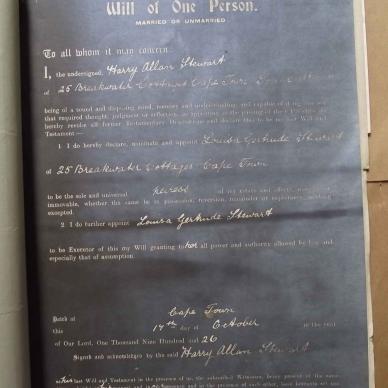 Will of One Person.
MARRIED OR UNMARRIED
To all whom it may concern
I, the undersigned, Harry Allan Stewart
of 25 Breakwater Cottages Cape Town
being of a sound and disposing mind, memory and understanding, and capable of any act
that required thought, judgment or reflection,
hereby revoke all former Testamentary Dispositions and declare this to be my Will and
Testament:—
1 I do hereby declare, nominate and appoint Louisa Gertrude Stewart
of 25 Breakwater Cottages Cape Town
to be the sole and universal heiress of my estate and effects,
immovable, whether the same be in possession, reversion, remainder or expectancy, nothing
excepted
2 I do further appoint Louisa Gertrude Stewart
to be Executor of this my Will granting to her all power and authority allowed by law and
especially that of assumption.
Dated at Cape Town
this 14th day of October in the year
of Our Lord, One Thousand Nine Hundred and 26
Signed and acknowledged by the said Harry Allan Stewart
last Will and Testament in the presence of us, the subscribed Witnesses, being present at the same